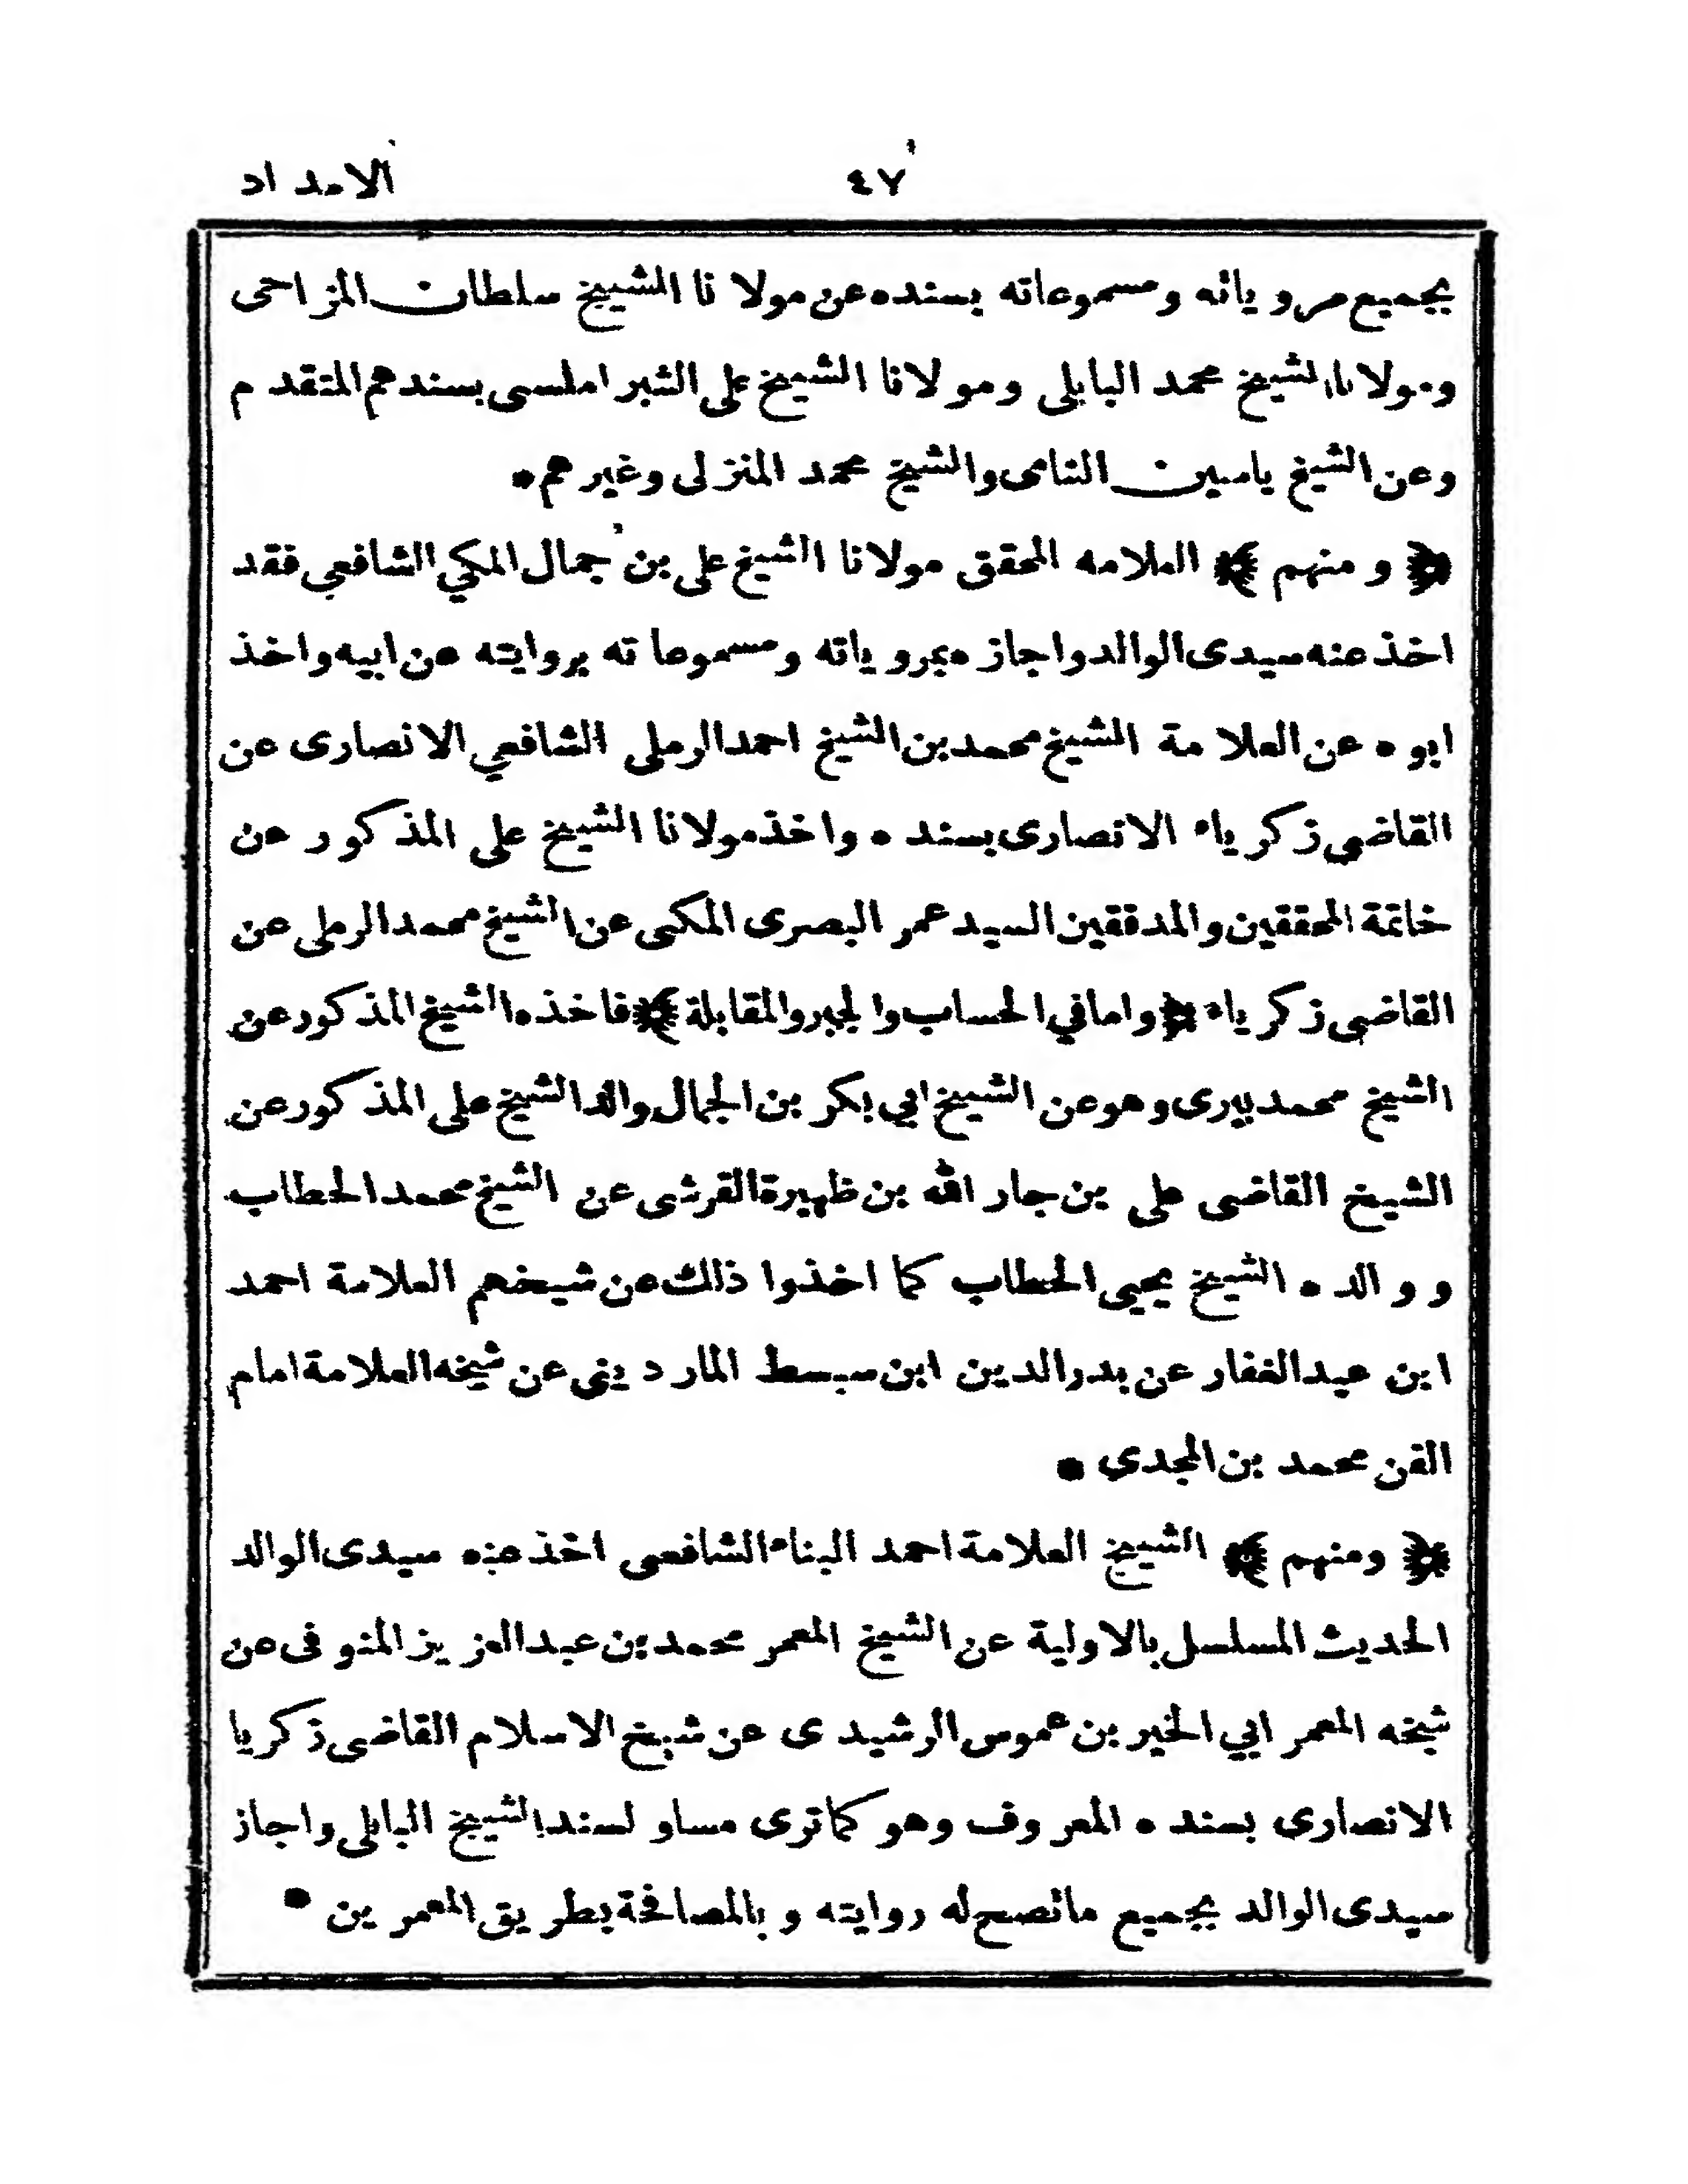 ٤٧ الامداد
بجميع مروياته ومسموعاته بسنده عن مولانا الشيخ سلطان المزاحى
ومولانا الشيخ محمد البابلى ومولانا الشيخ على الشبراملسى بسندهم المتقدم
وعن الشيخ ياسين الشامى والشيخ محمد المنزلى وغيرهم *
﴿ ومنهم ﴾ العلامه المحقق مولانا الشيخ على بن جمال المكي الشافعي فقد
اخذ عنه سيدى الوالد واجازه بمروياته ومسموعاته بروايته عن ابيه واخذ
ابوه عن العلامة الشيخ محمد بن الشيخ احمد الرملى الشافعي الانصارى عن
القاضى زكرياء الانصارى بسنده واخذ مولانا الشيخ على المذكور عن
خاتمة المحققين والمدققين السيد عمر البصرى المكى عن الشيخ محمد الرملى عن
القاضى زكرياء ﴿ واما في الحساب والجبر والمقابلة ﴾ فاخذه الشيخ المذكور عن
الشيخ محمد بيرى وهو عن الشيخ ابي بكر بن الجمال والد الشيخ على المذكور عن
الشيخ القاضى على بن جار الله بن ظهيرة القرشى عن الشيخ محمد الحطاب
ووالده الشيخ يحيى الحطاب كما اخذوا ذلك عن شيخهم العلامة احمد
ابن عبد الغفار عن بدر الدين ابن سبط الماردينى عن شيخه العلامة امام
الفن محمد بن المجدي *
﴿ ومنهم ﴾ الشيخ العلامة احمد البناء الشافعى اخذ عنه سيدى الوالد
الحديث المسلسل بالاولية عن الشيخ المعمر محمد بن عبد العزيز المنوفى عن
شيخه المعمر ابي الخير بن عموس الرشيدى عن شيخ الاسلام القاضى زكريا
الانصارى بسنده المعروف وهو كما ترى مساو لسند الشيخ البابلى واجاز
سيدى الوالد بجميع ما تصح له روايته وبالمصافحة بطريق المعمرين *